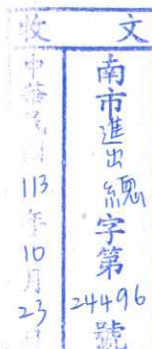 收文
南市進出總字第24496號
中華民國113年10月23日